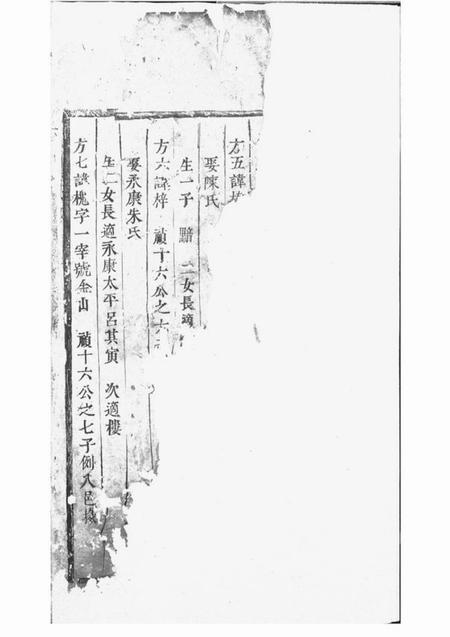 方五諱
娶陳氏
生一子 黯 二女長適
方六諱梓 禎十六公之六子
娶永康朱氏
生二女長適永康太平呂其寅 次適樓
方七諱槐字一宰號金山 禎十六公之七子例入邑掾